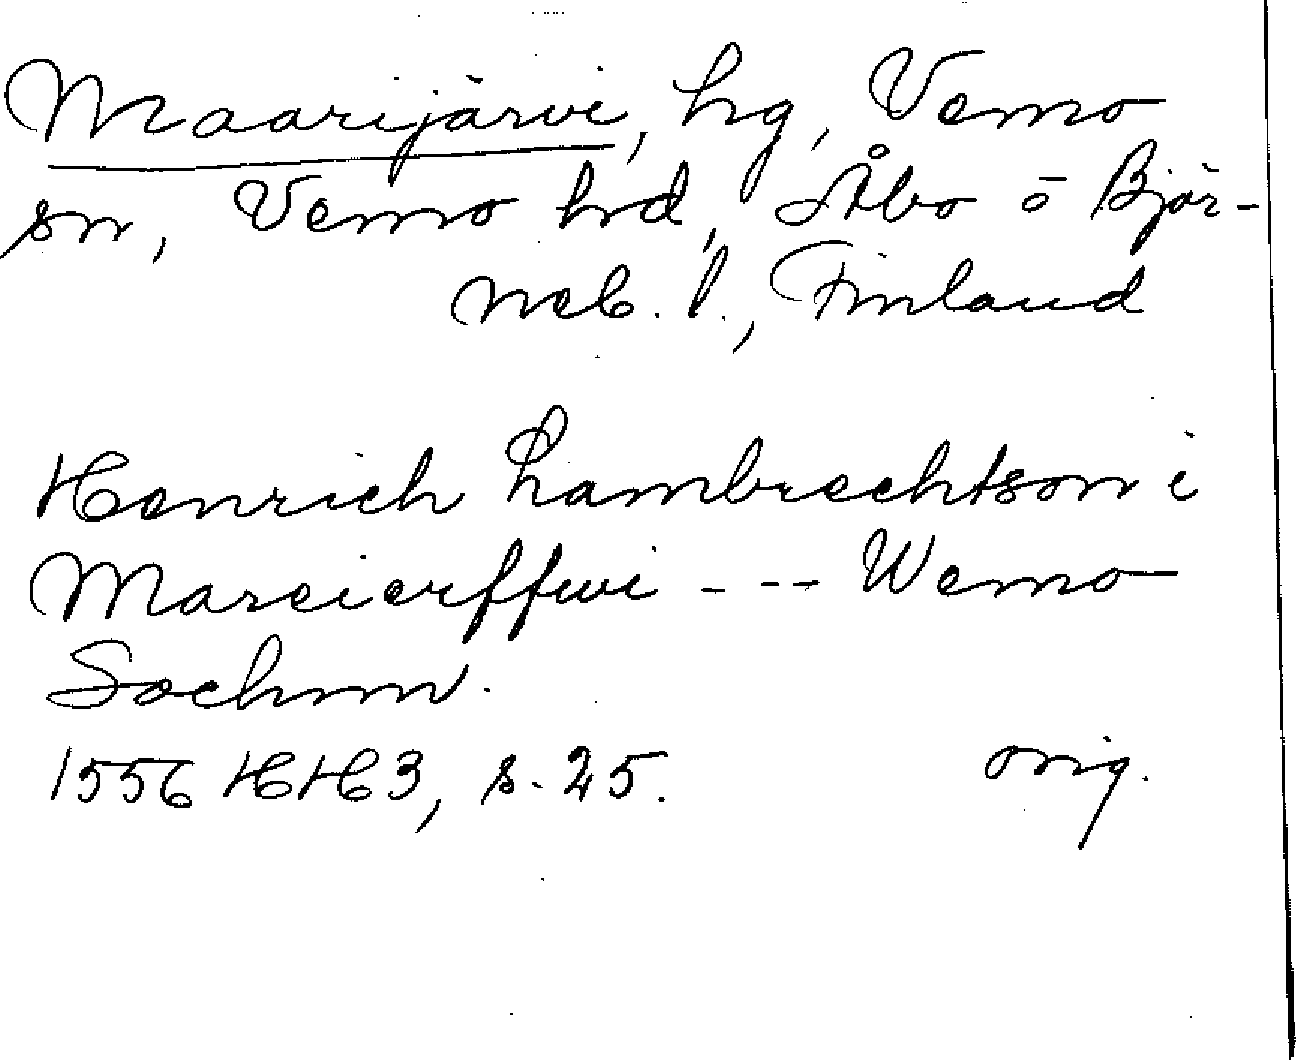 Maarijärvi, hg, Vemo
sn, Vemo hrd, Åbo o Björ-
neb. l., Finland
Henrich Lambrechtson i
Mareierffwi --- Wemo
Sochnn.
1556 HH3, s. 25. orig.